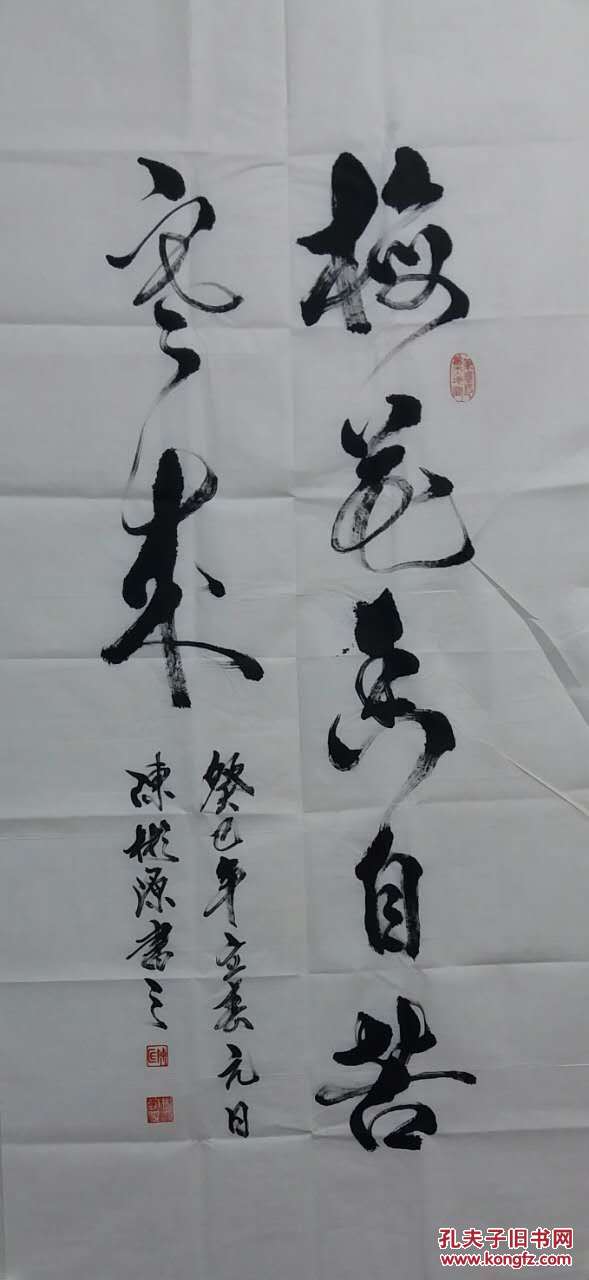 梅花香自苦
寒来
癸巳年立春元日
陈彬源书之
孔夫子旧书网
www.kongfz.com